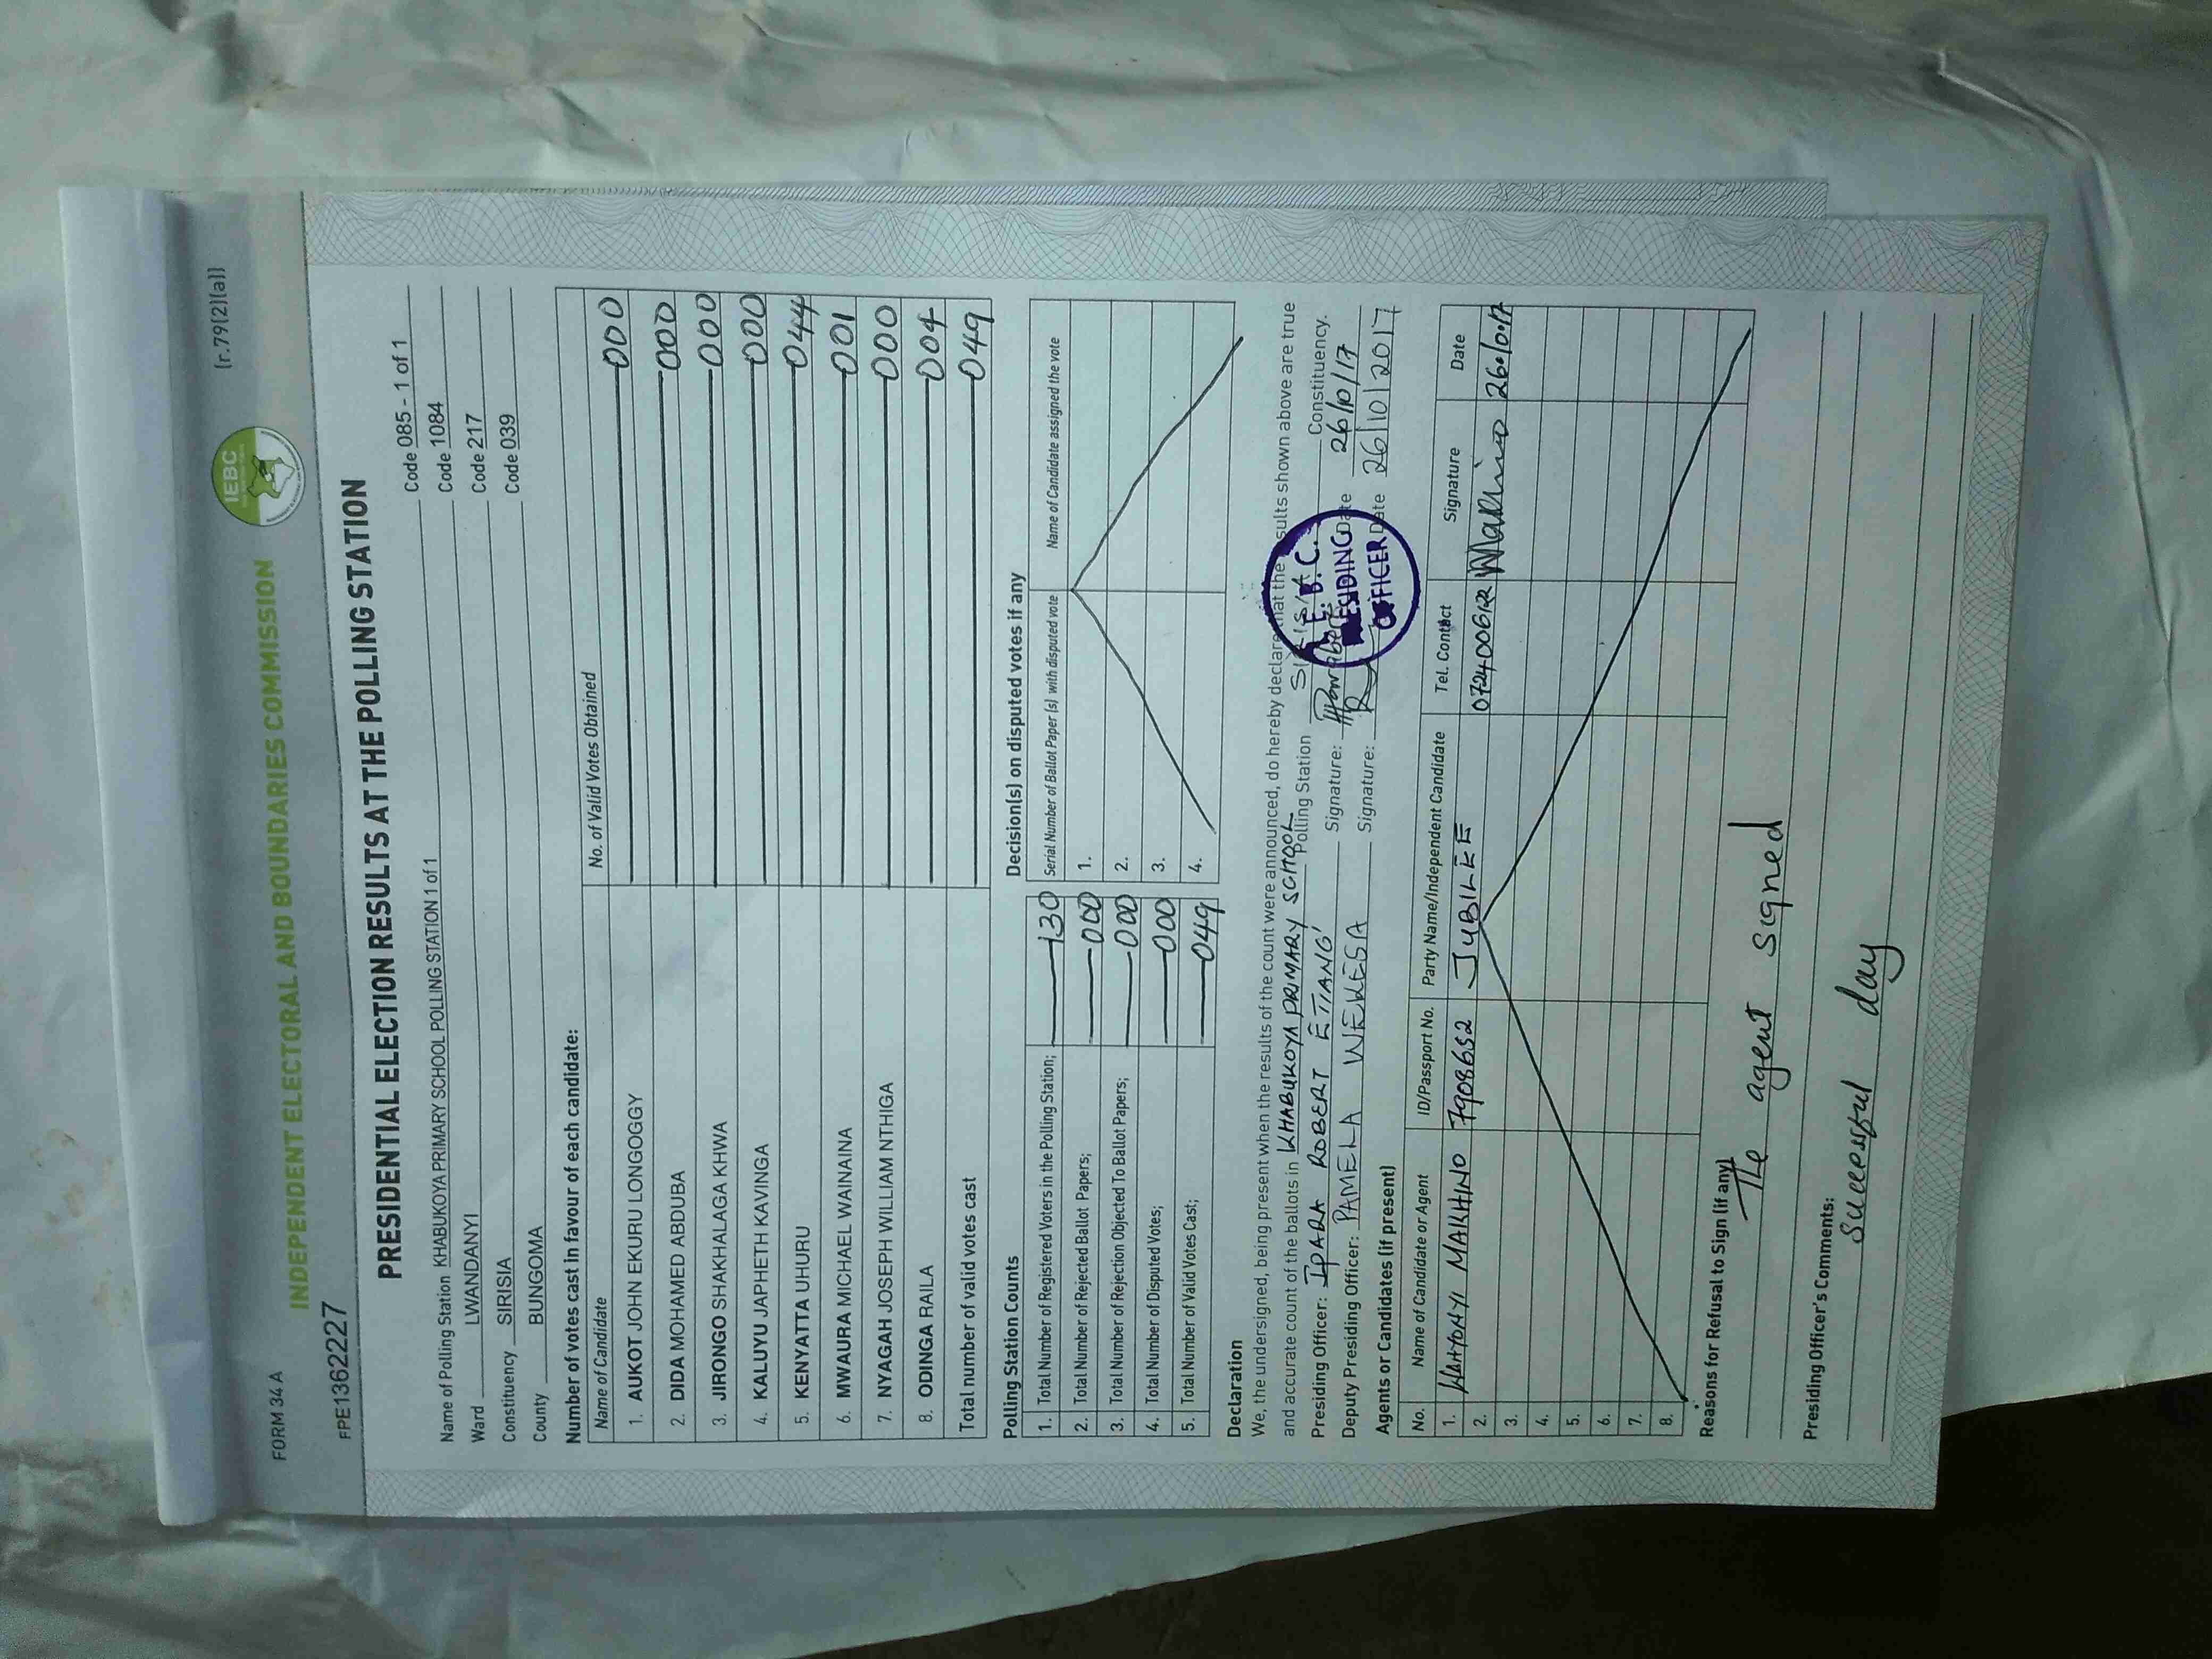 FORM 34 A
[r.79(2)(a)]
INDEPENDENT ELECTORAL AND BOUNDARIES COMMISSION
IEBC
FPE1362227
PRESIDENTIAL ELECTION RESULTS AT THE POLLING STATION
Name of Polling Station KHABUKOYA PRIMARY SCHOOL POLLING STATION 1 of 1 Code 085 - 1 of 1
Ward LWANDANYI Code 1084
Constituency SIRISIA Code 217
County BUNGOMA Code 039
Number of votes cast in favour of each candidate:
Name of Candidate No. of Valid Votes Obtained
1. AUKOT JOHN EKURU LONGOGGY 000
2. DIDA MOHAMED ABDUBA 000
3. JIRONGO SHAKHALAGA KHWA 000
4. KALUYU JAPHETH KAVINGA 000
5. KENYATTA UHURU 044
6. MWAURA MICHAEL WAINAINA 001
7. NYAGAH JOSEPH WILLIAM NTHIGA 000
8. ODINGA RAILA 004
Total number of valid votes cast 049
Polling Station Counts
1. Total Number of Registered Voters in the Polling Station; 130
2. Total Number of Rejected Ballot Papers; 000
3. Total Number of Rejection Objected To Ballot Papers; 000
4. Total Number of Disputed Votes; 000
5. Total Number of Valid Votes Cast; 049
Decision(s) on disputed votes if any
Serial Number of Ballot Paper (s) with disputed vote Name of Candidate assigned the vote
1.
2.
3.
4.
Declaration
We, the undersigned, being present when the results of the count were announced, do hereby declare that the results shown above are true
and accurate count of the ballots in KHABUKOYA PRIMARY SCHOOL Polling Station Constituency.
Presiding Officer: IPARA ROBERT ETIANG' Signature: Date 26/10/17
Deputy Presiding Officer: PAMELA WEKESA Signature: Date 26/10/2017
I.E.B.C. PRESIDING OFFICER
Agents or Candidates (if present)
No. Name of Candidate or Agent ID/Passport No. Party Name/Independent Candidate Tel. Contact Signature Date
1. WANYONYI MAKHINO 7908652 JUBILEE 0724006122 Makhino
2.
3.
4.
5.
6.
7.
8.
Reasons for Refusal to Sign (if any)
The agent signed
Presiding Officer's Comments:
successful day